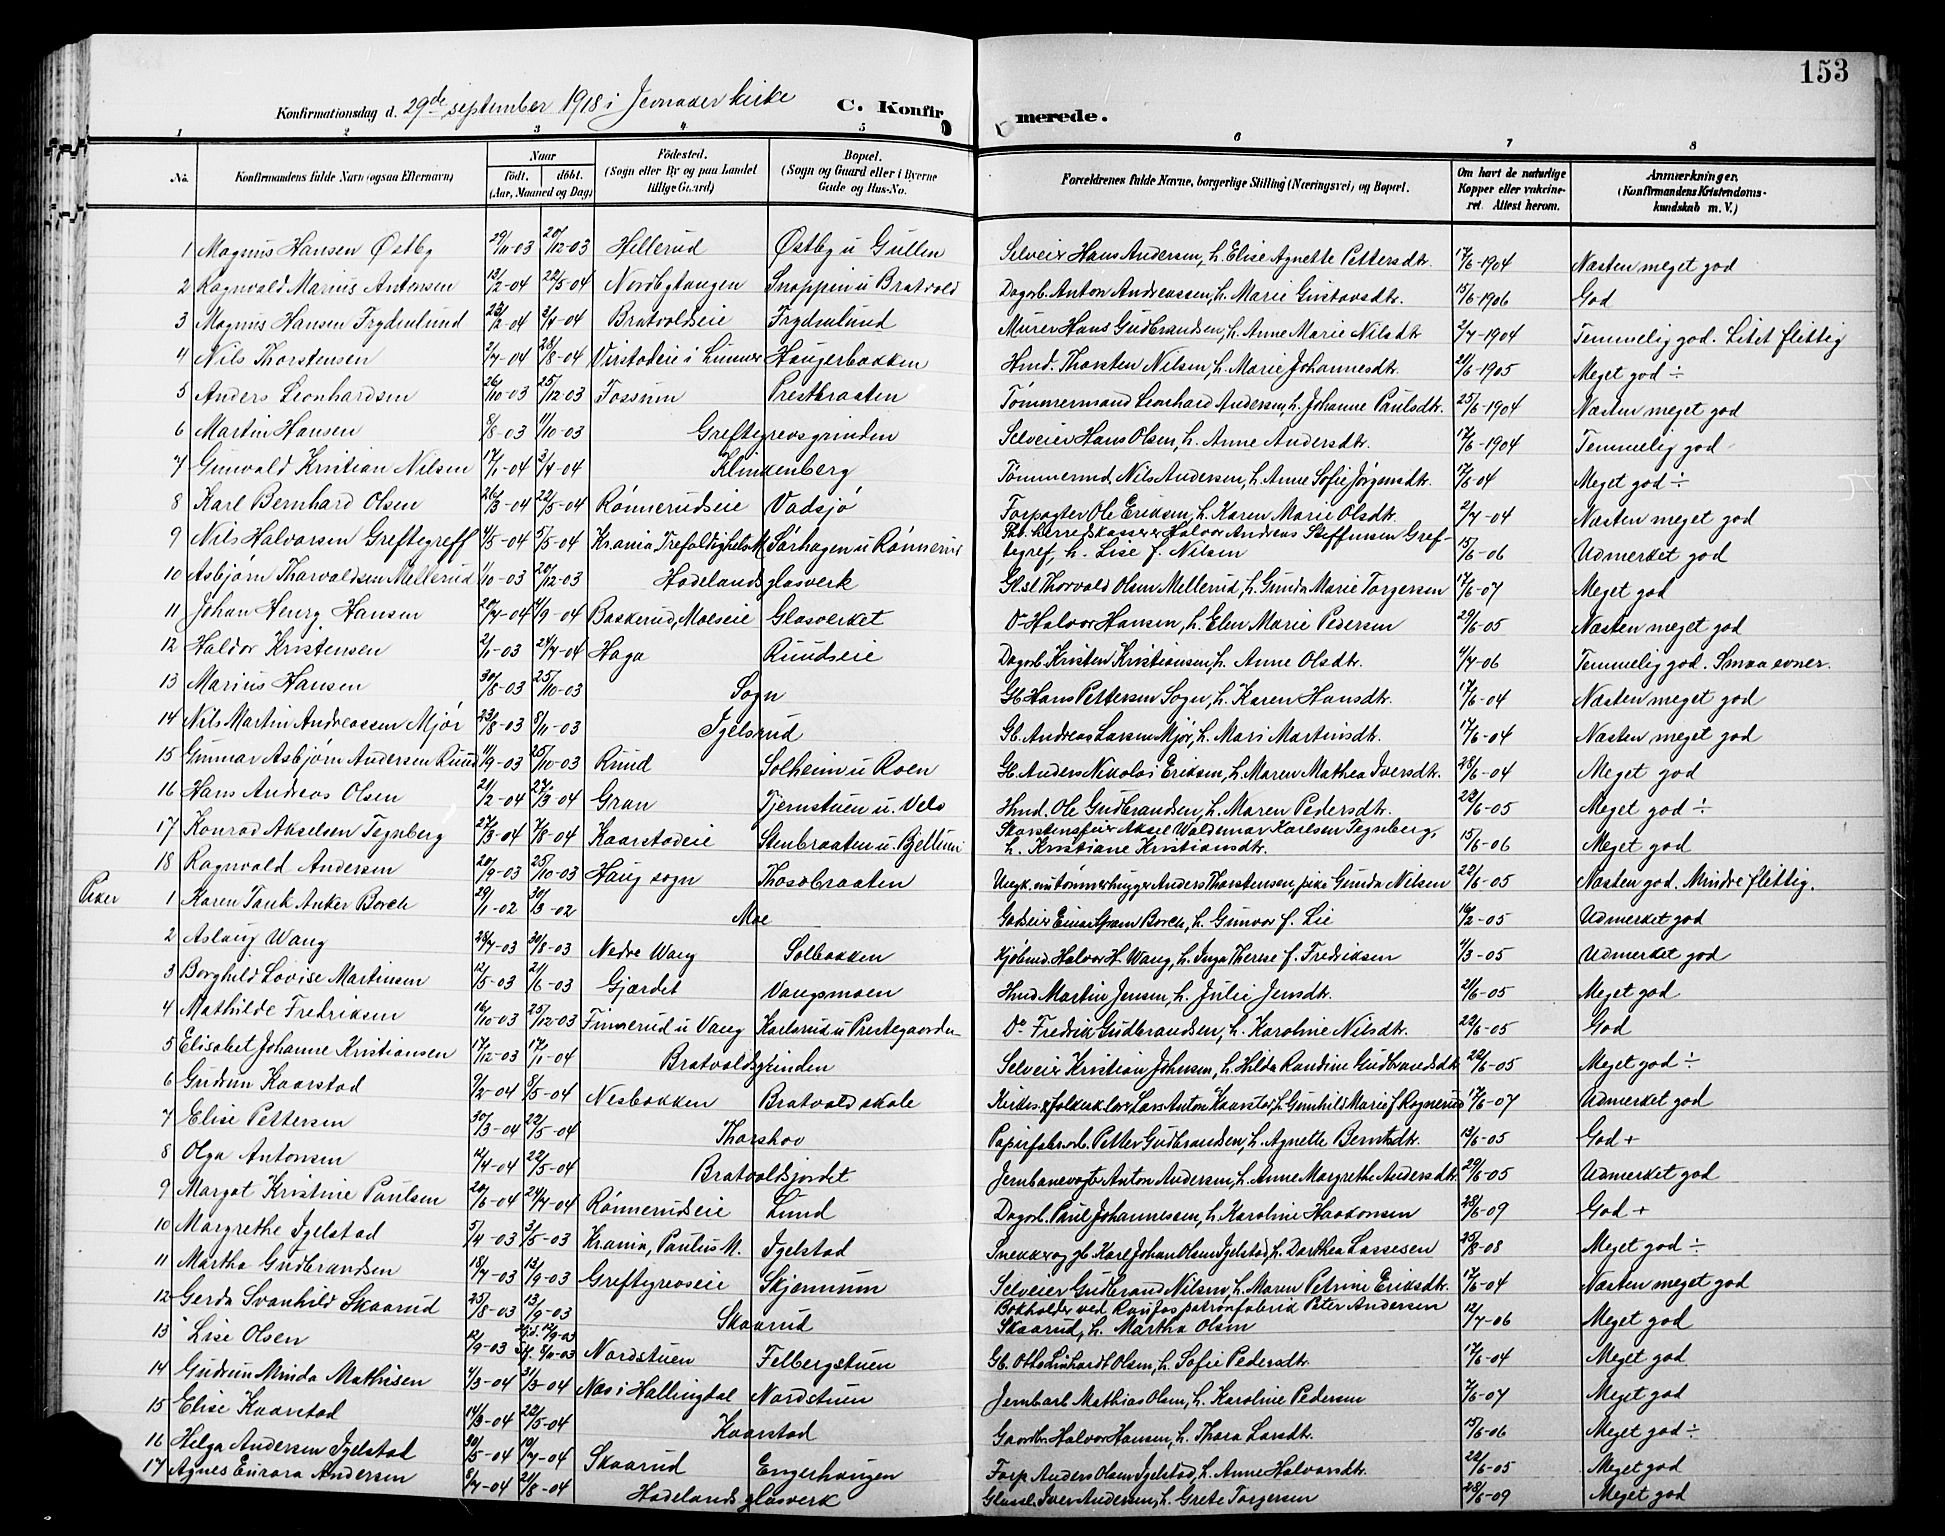 153
Konfirmationsdag d. 29de september 1918 i Jevnaker kirke C. Konfirmerede.
1 2 3 4 5 6 7 8
No. Konfirmandens fulde Navn (ogsaa Efternavn) Naar født. døbt. (Aar, Maaned og Dag) Fødested. (Sogn eller By og paa Landet tillige Gaard) Bopæl. (Sogn og Gaard eller i Byerne Gade og Hus-No. Forældrenes fulde Navne, borgerlige Stilling (Næringsvei) og Bopæl. Om havt de naturlige Kopper eller vakcineret. Attest herom. Anmærkninger. (Konfirmandens Kristendomskundskab m. V.)
1 Magnus Hansen Østby 29/11-03 20/12-03 Hellerud Østby u Gullen Selveier Hans Andersen, h. Elise Agnette Pettersdtr. 17/6-1904 Næsten meget god
2 Ragnvald Marius Antonsen 13/2-04 22/5-04 Nordbytangen Snoppin u Bratvold Dagarb. Anton Andreassen, h. Marie Gustavsdtr. 15/6-1906 God
3 Magnus Hansen Frydenlund 23/2-04 3/4-04 Bratvoldseie Frydenlund Murer Hans Gudbrandsen, h. Anne Marie Nilsdtr 2/7-1904 Temmelig god. Litet flittig
4 Nils Thorstensen 2/7-04 28/8-04 Virstadeie i Lunner Haugerbakken Hmd. Thorsten Nilsen, h. Marie Johannesdtr. 21/6-1905 Meget god ÷
5 Anders Leonhardsen 26/10-03 25/12-03 Fossum Prestbraaten Tømmermand Leonhard Andersen, h. Johanne Paulsdtr. 25/6-1904 Næsten meget god
6 Martin Hansen 5/8-03 11/10-03 Greftegrevsgrinden Selveier Hans Olsen, h. Anne Andersdtr. 17/6-1904 Temmelig god
7 Gunvald Kristian Nilsen 17/1-04 3/4-04 Klinkenberg Tømmermd. Nils Andersen, h. Anne Sofie Jørgensdtr. 17/6-04 Meget god ÷
8 Karl Bernhard Olsen 26/3-04 22/5-04 Rønnerudseie Vadsjø Forpagter Ole Eriksen, h. Karen Marie Olsdtr. 2/7-04 Næsten meget god
9 Nils Halvorsen Greftegreff 4/5-04 5/5-04 Krania Trefoldighets M. Sørhagen u Rønnerud Fhv. herredskasserer Halvor Andreas Steffensen Greftegref, h. Lise f. Nilsen 15/6-06 Udmerket god
10 Asbjørn Thorvaldsen Mellerud 1/10-03 20/12-03 Hadelands glasverk Glsl. Thorvald Olsen Mellerud, h. Gunda Marie Torgersen 17/6-07 Meget god
11 Johan Henry Hansen 20/7-04 4/9-04 Baskerud, Moeseie Glasverket Do Halvor Hansen, h. Elen Marie Pedersen 29/6-05 Næsten meget god
12 Haldor Kristensen 2/1-03 24/7-04 Haga Ruudseie Dagarb. Kristen Kristiansen, h. Anne Olsdtr. 4/7-06 Temmelig god. Smaa evner.
13 Marius Hansen 30/8-03 25/10-03 Sogn Gb. Hans Pettersen Sogn, h. Karen Hansdtr. 17/6-04 Næsten meget god
14 Nils Martin Andreassen Mjør 23/8-03 8/11-03 Igelsrud Gb. Andreas Larsen Mjør, h. Mari Martinsdtr. 17/6-04 Næsten meget god
15 Gunnar Asbjørn Andersen Ruud 11/9-03 25/10-03 Ruud Solheim u Roen Gb. Anders Nikolai Eriksen, h. Maren Mathea Iversdtr. 28/6-04 Meget god
16 Hans Andreas Olsen 21/2-04 27/3-04 Gran Tjernstuen u. Velo Hmd. Ole Gudbrandsen, h. Maren Pedersdtr. 22/6-05 Meget god ÷
17 Konrad Akselsen Tegnberg 27/3-04 7/8-04 Kaarstadeie Stenbraaten u. Bjellum Skorstensfeier Aksel Waldemar Karlsen Tegnberg, h. Kristiane Kristiansdtr. 15/6-06 Meget god
18 Ragnvald Andersen 20/9-03 25/10-03 Haug sogn Thosobraaten Ungk. nu tømmerhugger Anders Thorstensen, pike Gunda Nilsen 22/6-05 Næsten god. Mindre flittig.
Piker 1 Karen Tank Anker Borch 29/1-02 30/3-02 Moe Godseier Einar Gram Borch, h. Gunvor f. Lie 16/2-05 Udmerket god
2 Aslaug Wang 28/7-03 30/8-03 Nedre Wang Solbakken Kjøbmd. Halvor H. Wang, h. Inga Therese f. Fredriksen 4/3-05 Udmerket god
3 Borghild Lovise Martinsen 12/5-03 21/6-03 Gjærdet Vangsmoen Hmd Martin Jensen, h. Julie Jensdtr. 21/6-05 Meget god
4 Mathilde Fredriksen 16/10-03 25/12-03 Finnerud u Vang Karlsrud u Prestegaarden Do Fredrik Gudbrandsen, h. Karoline Nilsdtr. 22/6-05 God
5 Elisabet Johanne Kristiansen 17/12-03 17/1-04 Bratvoldsgrinden Selveier Kristian Johnsen, h. Hilda Randine Gudbrandsdtr 22/6-05 Meget god ÷
6 Gudrun Kaarstad 9/2-04 8/5-04 Nesbakken Bratvold skole Kirkes. & folkesk. lærer Lars Anton Kaarstad, h. Gunhild Marie f Rognerud 17/6-07 Udmerket god
7 Elise Pettersen 30/3-04 22/5-04 Thorshov Papirfabr.arb. Petter Gudbrandsen, h. Agnette Berntsdtr. 13/6-05 God +
8 Olga Antonsen 12/4-04 22/5-04 Bratvoldsjordet Jernbanevogter Anton Andersen, h. Anne Margrethe Andersdtr. 29/6-05 Udmerket god
9 Margot Kristine Paulsen 20/6-04 24/7-04 Rønnerudseie Lund Dagarb. Paul Johannessen, h. Karoline Haakonsen 28/6-09 God +
10 Margrethe Igelstad 5/4-03 3/5-03 Krania, Paulus M. Igelstad Snekker og gb. Karl Johan Olsen Igelstad, h. Dorthea Lassesen 25/8-08 Meget god ÷
11 Martha Gudbrandsen 18/7-03 13/9-03 Greftegreveie Skjennum Selveier Gudbrand Nilsen, h. Maren Petrine Eriksdtr. 17/6-04 Næsten meget god
12 Gerda Svanhild Skaarud 25/8-03 13/9-03 Skaarud Bokholder ved Raufos patronfabrik Peter Andersen Skaarud, h. Martha Olsen 12/7-06 Meget god
13 Lise Olsen 12/9-03 12/9-03 8/11-03 Nordstuen Felbergstuen Gb. Otto Linhardt Olsen, h. Sofie Pedersdtr. 17/6-04 Meget god
14 Gudrun Minda Mathisen 4/3-04 31/3-04 Næs i Hallingdal Nordstuen Jernbarb. Mathias Olsen, h. Karoline Pedersen 7/6-07 Meget god
15 Elise Kaarstad 14/3-04 22/5-04 Kaarstad Gaardbr. Halvor Hansen, h. Thora Larsdtr. 15/6-06 Meget god ÷
16 Helga Andersen Igelstad 30/5-04 10/7-04 Skaarud Engerhaugen Forp. Anders Olsen Igelstad, h. Anne Halvorsdtr. 22/6-05 Meget god
17 Agnes Eurora Andersen 8/7-04 21/8-04 Hadelands glasverk Glassl. Iver Andersen, h. Grete Torgersen 28/6-09 Meget god